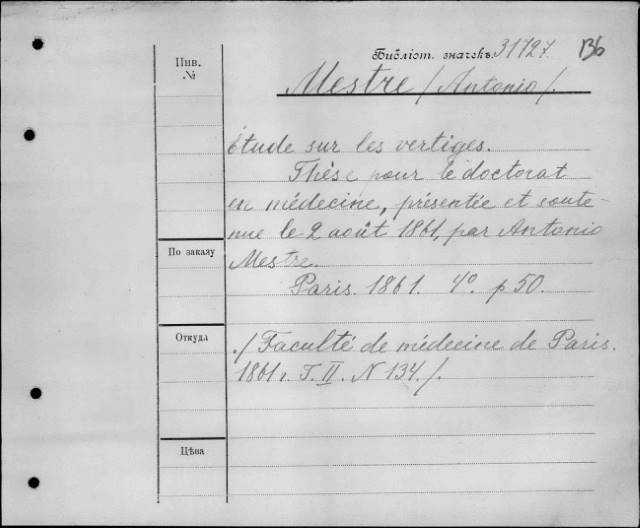 Инв.
№
Библіот. значекъ. 31727. 136
Mestre / Antonio /.
Étude sur les vertiges.
Thèse pour le doctorat
en médecine, présentée et soute-
nue le 2 août 1861, par Antonio
По заказу
Mestre.
Paris. 1861. 4º. p 50.
Откуда
./ Faculté de médecine de Paris.
1861 г. T. II. N 134 /.
Цѣна